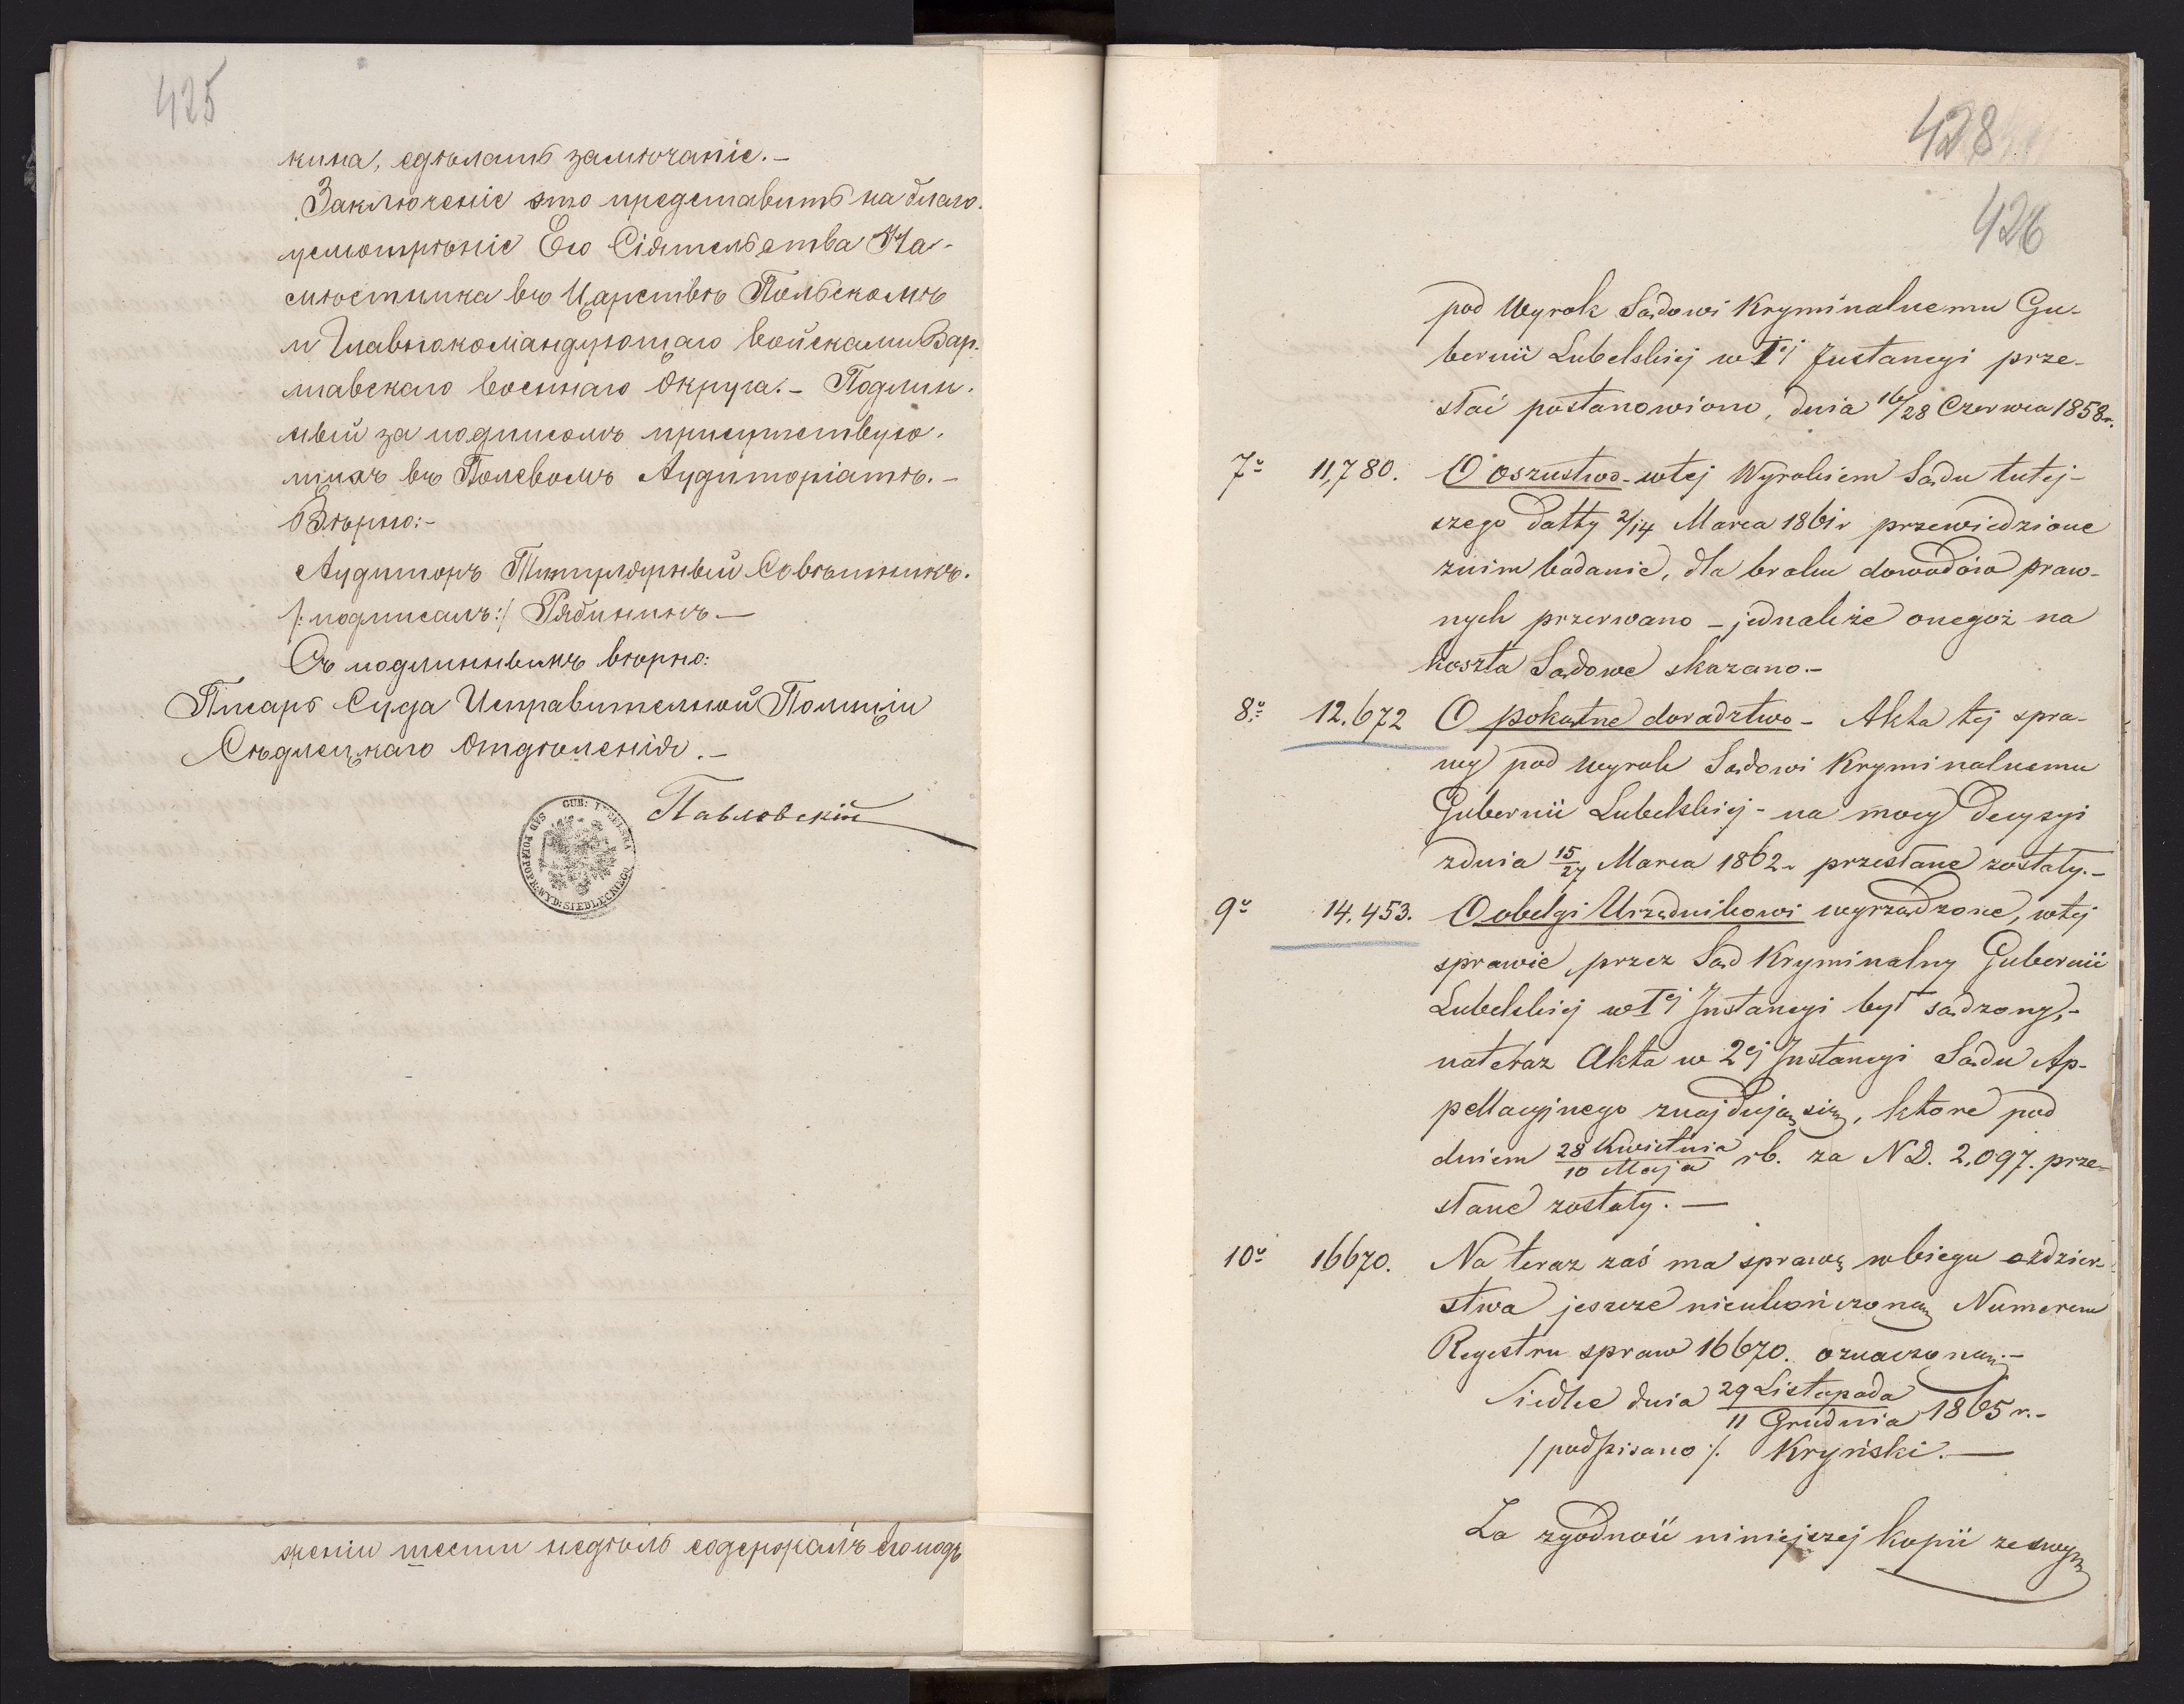 425
кина, сдѣлать замѣчаніе. –
Заключеніе это представить на благо-
усмотрѣніе Его Сіятельства На-
мѣстника въ Царствѣ Польскомъ
и Главнокомандующаго войсками Вар-
шавскаго военнаго Округа. – Подлин-
ный за подписомъ присутствую-
щихъ въ Полевомъ Аудиторіатѣ. –
Вѣрно: –
Аудиторъ Титулярный Совѣтникъ.
/: подписалъ :/ Рябининъ —
Съ подлиннымъ вѣрно:
Писарь Суда Исправительной Полиціи
Сѣдлецкаго Отдѣленія. –
Павловскій
SĄD POLI: POPR: WYD: SIEDLECKIEGO
GUB: LUBELSKA
женіи шести недѣль содержалъ его подъ
428
426
pod Wyrok Sądowi Kryminalnemu Gu-
bernii Lubelskiej w Iej Instancyi prze-
słać postanowiono, dnia 16/28 Czerwca 1858 r.
7o 11,780. O oszustwo – w tej Wyrokiem Sądu tutej-
szego Datty 2/14 Marca 1861 r przewiedzione
z nim badanie, dla braku dowodów praw-
nych przerwano – jednakże onegoż na
koszta Sądowe skazano. –
8o 12.672 O pokątne doradztwo – Akta tej spra-
wy pod wyrok Sądowi Kryminalnemu
Gubernii Lubelskiej – na mocy Decyzyi
z dnia 15/27 Marca 1862 r przesłane zostały. –
9o 14,453. O obelgi Urzędnikowi wyrządzone, w tej
sprawie przez Sąd Kryminalny Gubernii
Lubelskiej w Iej Instancyi był sądzony, –
na teraz Akta w 2ej Instancyi Sądu Ap-
pellacyjnego znajdują się, które pod
dniem 28 Kwietnia/10 Maja r b. za N D. 2,097. prze-
słane zostały. —
10o 16670. Na teraz zaś ma sprawę w biegu o zdzier-
stwa jeszcze nieukończoną Numerem
Regestru spraw 16670. oznaczoną. –
Siedlce dnia 29 Listopada/11 Grudnia 1865 r. –
/podpisano/. Kryński. —
Za zgodność niniejszej kopii ze swym